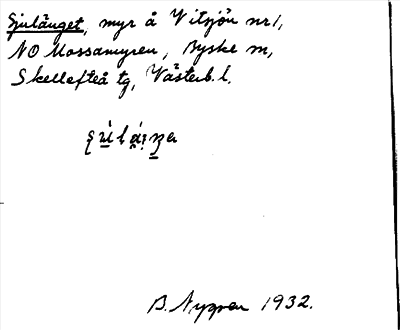 Sjulänget, myr å Vitsjön nr 1,
NO Mossamyren, Byske m,
Skellefteå tg, Västerb. l.
B. Nygren 1932.